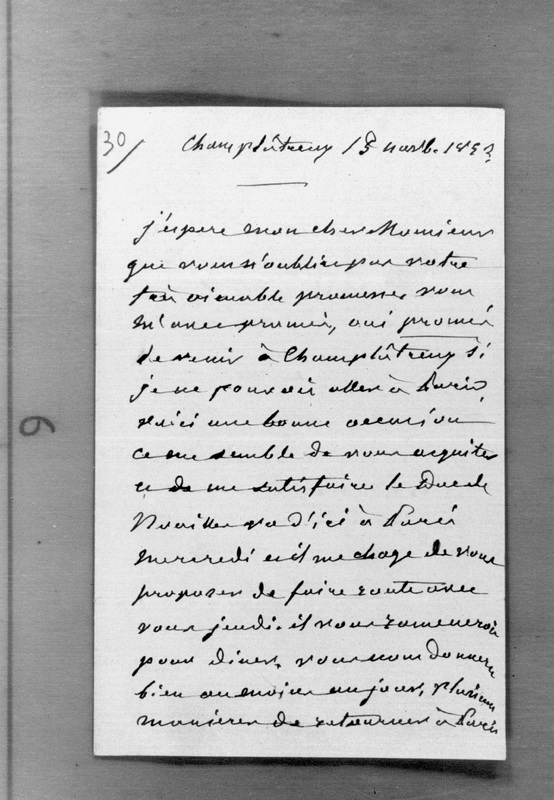 30/
Champlâtreux 13 novb. 1853
j'espere mon cher Monsieur
que vous n'oubliez pas votre
très aimable promesse, vous
m'avez promis, oui promis
de venir à Champlâtreux si
je ne pouvois aller à Paris,
voici une bonne occasion
ce me semble de vous acquiter
et de me satisfaire le Duc de
Noailles va d'ici à Paris
mercredi et il me charge de vous
proposer de faire route avec
vous jeudi. il vous rameneroit
pour diner, vous nous donnerez
bien au moins un jour, plusieurs
manieres de retourner à Paris
6